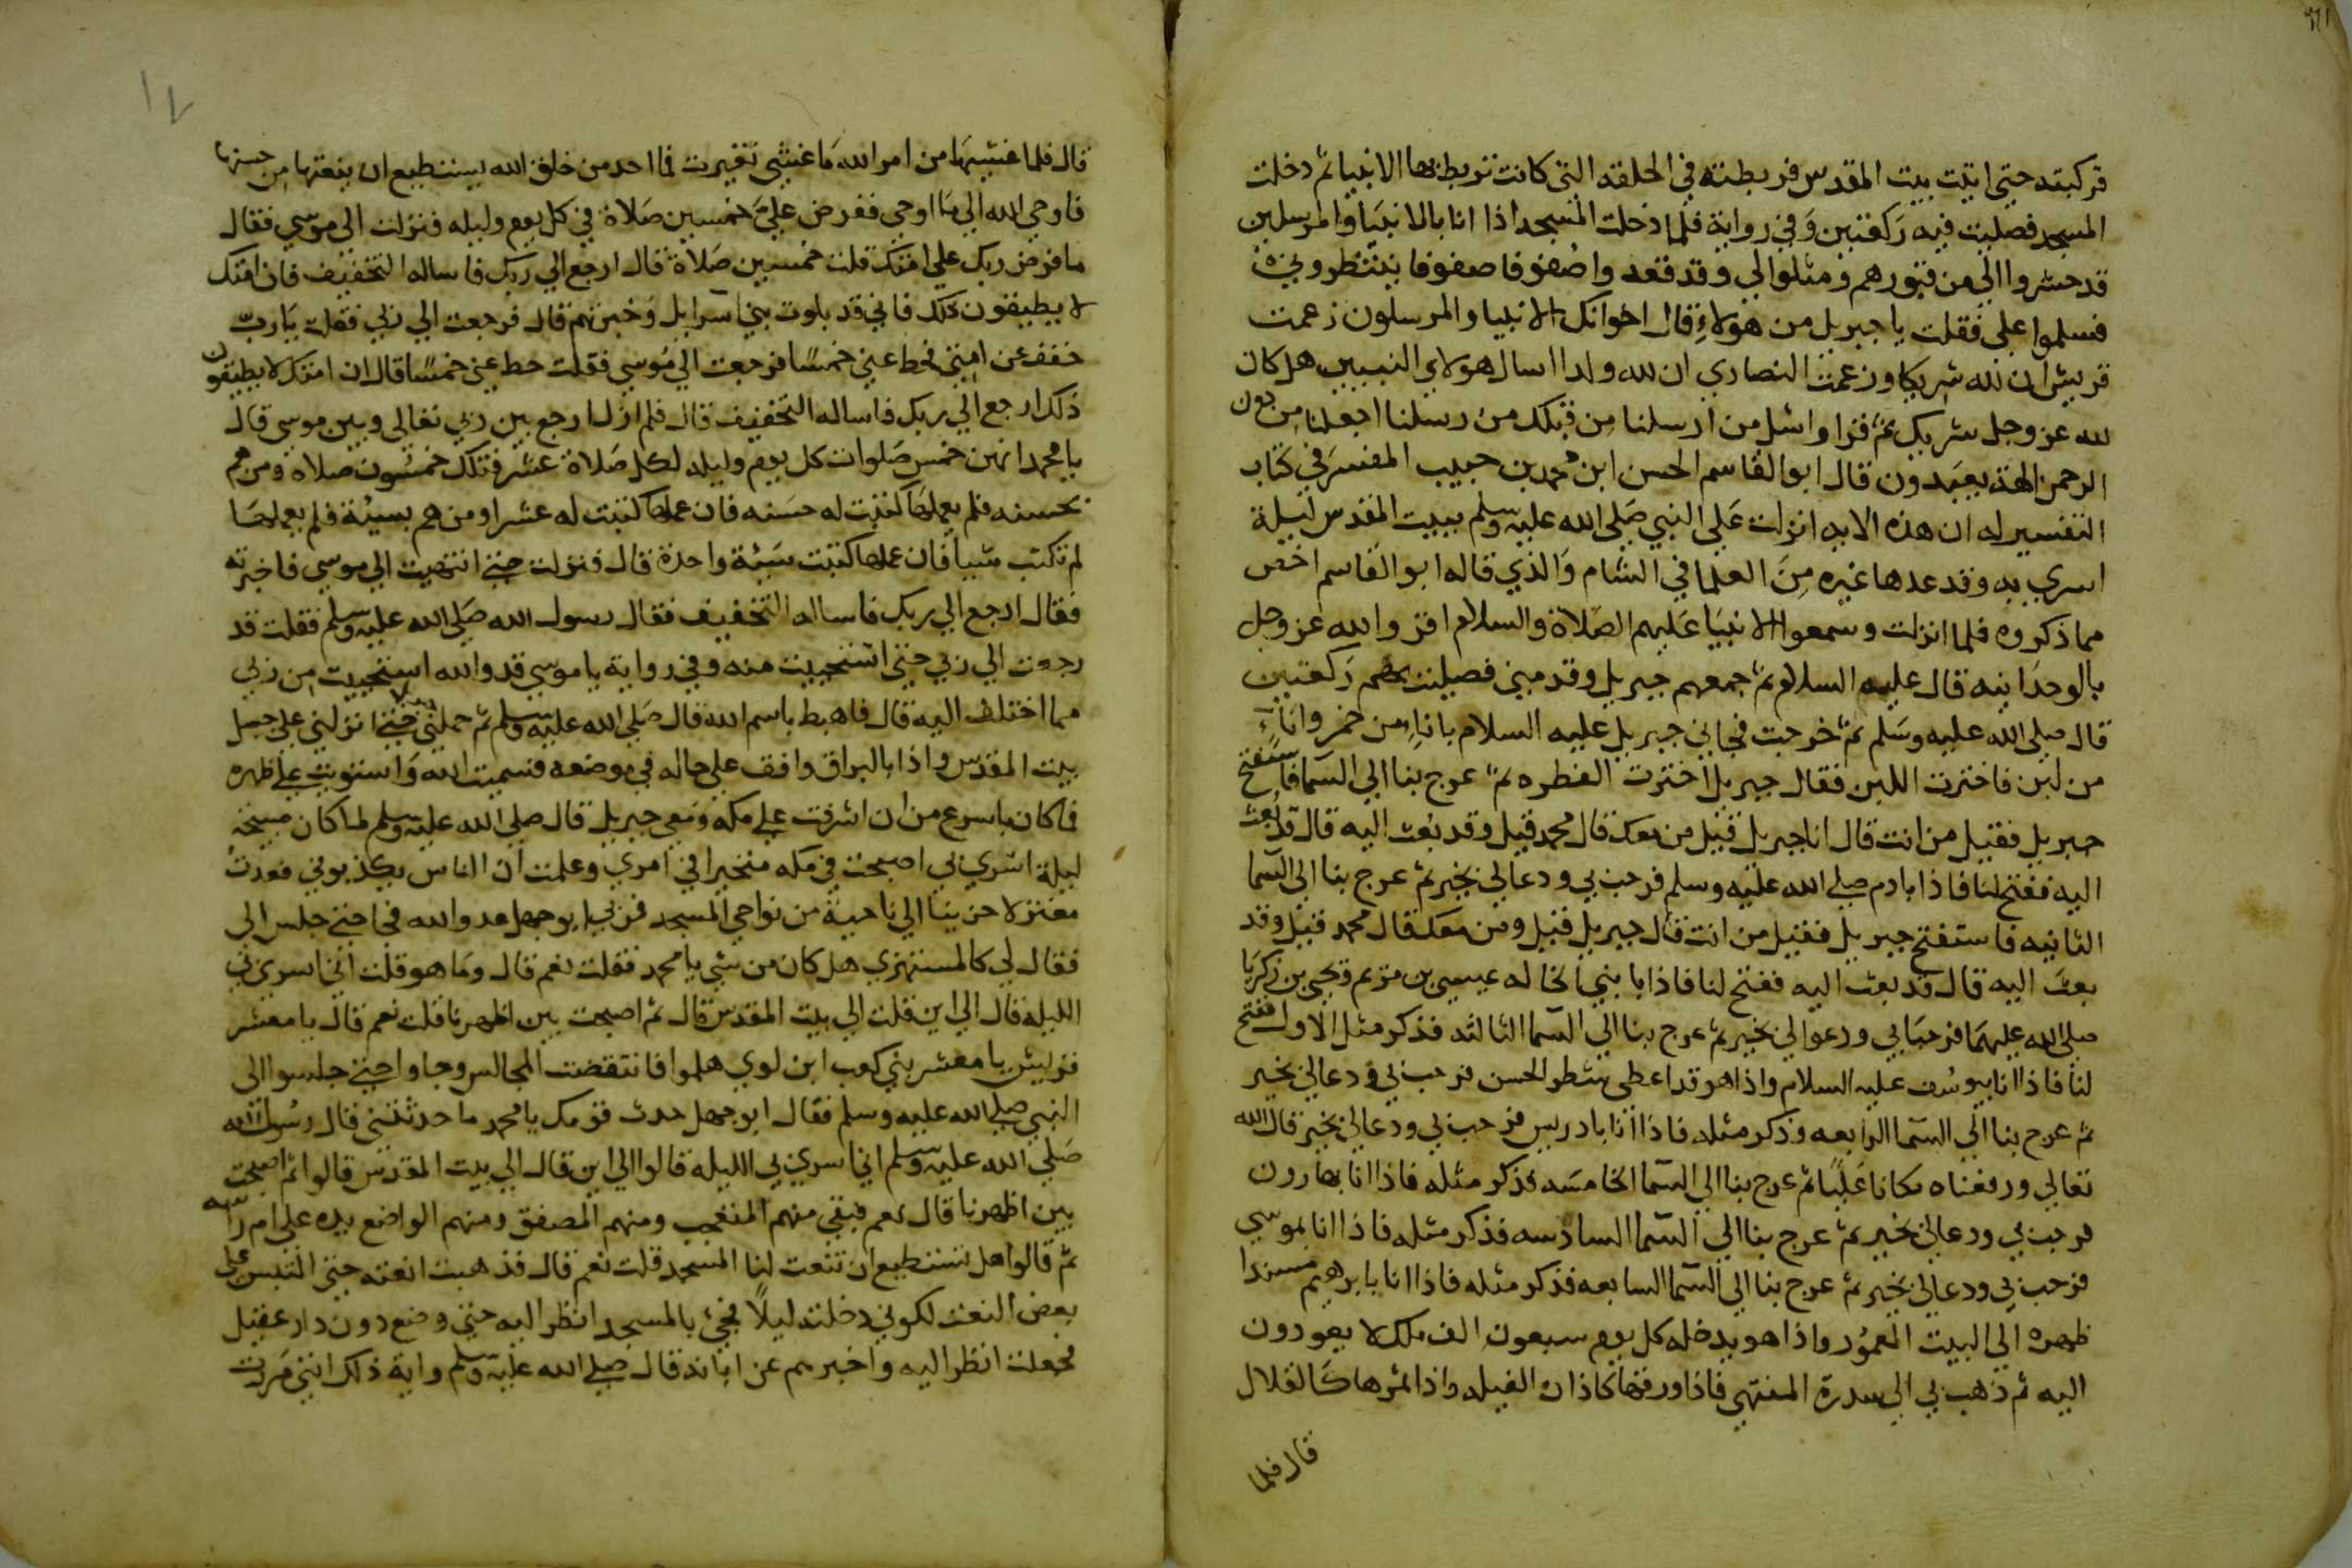 فركبته حتى اتيت بيت المقدس فربطته في الحلقه التي كانت تربط بها الانبيا ثم دخلت
المسجد فصليت فيه ركعتين وفي رواية فلما دخلت المسجد اذا انا بالانبيا والمرسلين
قد حشروا الي من قبورهم ومثلوا لي وقد قعدوا صفوفا صفوفا ينتظروني
فسلموا علي فقلت يا جبريل من هولاء قال اخوانك الانبيا والمرسلون زعمت
قريش ان لله شريكا وزعمت النصاري ان لله ولدا اسال هولاي النبيين هل كان
لله عز وجل شريك ثم قرا واسئل من ارسلنا من قبلك من رسلنا اجعلنا من دون
الرحمن الهة يعبدون قال ابو القاسم الحسن ابن محمد بن حبيب المفسر في كتاب
التفسير له ان هذه الايه انزلت علي النبي صلي الله عليه وسلم ببيت المقدس ليلة
اسري به وقد عدها غيره من العلما في الشام والذي قاله ابو القاسم اخص
مما ذكروه فلما انزلت وسمعوا الانبيا عليهم الصلاة والسلام اقروا لله عز وجل
بالوحدانيه قال عليه السلام ثم جمعهم جبريل وقدمني فصليت بهم ركعتين
قال صلي الله عليه وسلم ثم خرجت فجاني جبريل عليه السلام باناء من خمر واناء
من لبن فاخترت اللبن فقال جبريل اخترت الفطره ثم عرج بنا الي السما فاستفتح
جبريل فقيل من انت قال انا جبريل قيل من معك قال محمد قيل وقد بعث اليه قال قد بعث
اليه ففتح لنا فاذا بادم صلي الله عليه وسلم فرحب بي ودعا لي بخير ثم عرج بنا الى السما
الثانيه فاستفتح جبريل فقيل من انت قال جبريل قيل ومن معك قال محمد قيل وقد
بعث اليه قال قد بعث اليه ففتح لنا فاذا بابني الخاله عيسى بن مريم ويحيى بن زكريا
صلي الله عليهما فرحبا بي ودعوا لي بخير ثم عرج بنا الي السما الثالثه فذكر مثل الاول ففتح
لنا فاذا انا بيوسف عليه السلام واذا هو قد اعطي شطر الحسن فرحب بي ودعا لي بخير
ثم عرج بنا الي السما الرابعه وذكر مثله فاذا انا بادريس فرحب بي ودعا لي بخير قال الله
تعالي ورفعناه مكانا عليا ثم عرج بنا الي السما الخامسه فذكر مثله فاذا انا بهارون
فرحب بي ودعا لي بخير ثم عرج بنا الي السما السادسه فذكر مثله فاذا انا بموسي
فرحب بي ودعا لي بخير ثم عرج بنا الي السما السابعه فذكر مثله فاذا انا بابرهيم مسندا
ظهره الي البيت المعمور واذا هو يدخله كل يوم سبعون الف ملك لا يعودون
اليه ثم ذهب بي الي سدرة المنتهي فاذا ورقها كاذان الفيله واذا ثمرها كالقلال
قال فلما
قال فلما غشيها من امر الله ما غشي تغيرت فما احد من خلق الله يستطيع ان ينعتها من حسنها
فاوحي الله الي ما اوحي ففرض علي خمسين صلاة في كل يوم وليله فنزلت الي موسي فقال
ما فرض ربك علي امتك قلت خمسين صلاة قال ارجع الي ربك فاساله التخفيف فان امتك
لا يطيقون ذلك فاني قد بلوت بني اسرايل وخبرتهم قال فرجعت الي ربي فقلت يارب
خفف عن امتي فحط عني خمسا فرجعت الي موسي فقلت حط عني خمسا قال ان امتك لا يطيقون
ذلك ارجع الي ربك فاساله التخفيف قال فلم ازل ارجع بين ربي تعالي وبين موسي قال
يا محمد انهن خمس صلوات كل يوم وليله لكل صلاة عشر فتلك خمسون صلاه ومن هم
بحسنه فلم يعملها كتبت له حسنه فان عملها كتبت له عشرا ومن هم بسيئة فلم يعملها
لم تكتب شيا فان عملها كتبت سيئة واحدة قال فنزلت حتي انتهيت الي موسي فاخبرته
فقال ارجع الي ربك فاساله التخفيف فقال رسول الله صلي الله عليه وسلم فقلت قد
رجعت الي ربي حتي استحييت منه وفي رواية يا موسي قد والله استحييت من ربي
مما اختلف اليه قال فاهبط باسم الله قال صلي الله عليه وسلم ثم حملني حتي انزلني علي جبل
بيت المقدس واذا بالبراق واقف علي حاله في موضعه فسميت الله واستويت علي ظهره
فما كان باسرع من ان اشرفت علي مكه ومعي جبريل قال صلي الله عليه وسلم لما كان صبيحة
ليلة اسري بي اصبحت في مكه متحيرا في امري وعلمت ان الناس يكذبوني فعدت
معتزلا حزينا الي ناحية من نواحي المسجد فمر بي ابو جهل عدو الله فجا حتي جلس الي
فقال لي كالمستهزي هل كان من شي يا محمد فقلت نعم قال وما هو قلت اني اسري بي
الليله قال الي اين قلت الي بيت المقدس قال ثم اصبحت بين اظهرنا قلت نعم قال يا معشر
قريش يا معشر بني كعب ابن لوي هلموا فانتقضت المجالس وجاوا حتي جلسوا الي
النبي صلي الله عليه وسلم فقال ابو جهل حدث قومك يا محمد ما حدثتني قال رسول الله
صلي الله عليه وسلم اني اسري بي الليله قالوا الي اين قال الي بيت المقدس قالوا ثم اصبحت
بين اظهرنا قال نعم فبقي منهم المتعجب ومنهم المصفق ومنهم الواضع يده علي ام راسه
ثم قالوا هل تستطيع ان تنعت لنا المسجد قلت نعم قال فذهبت انعته حتي التبس علي
بعض النعت لكوني دخلته ليلا فجئ بالمسجد انظر اليه حتي وضع دون دار عقيل
فجعلت انظر اليه واخبرهم عن اياته قال صلي الله عليه وسلم واية ذلك انني مررت